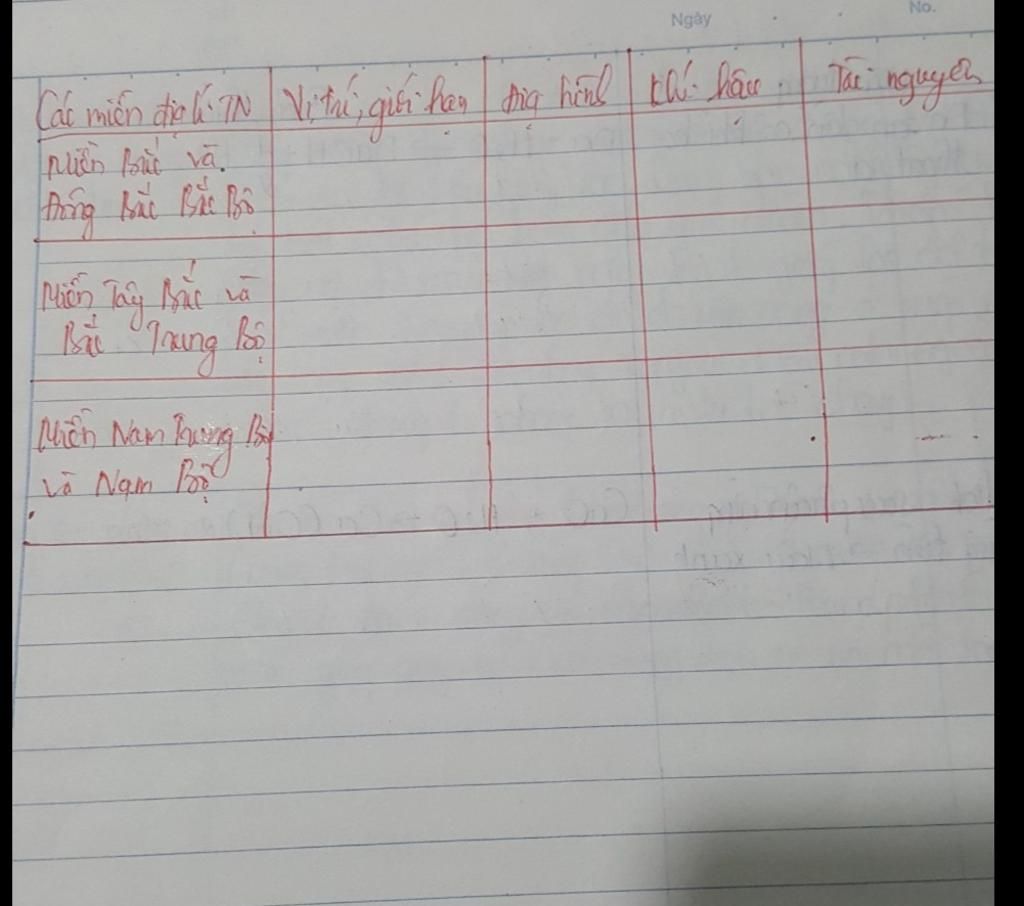 Ngày
No.
Các miền địa lí TN Vị trí, giới hạn địa hình khí hậu Tài nguyên
Miền Bắc và
Đông Bắc Bắc Bộ
Miền Tây Bắc và
Bắc Trung Bộ
Miền Nam Trung Bộ
và Nam Bộ